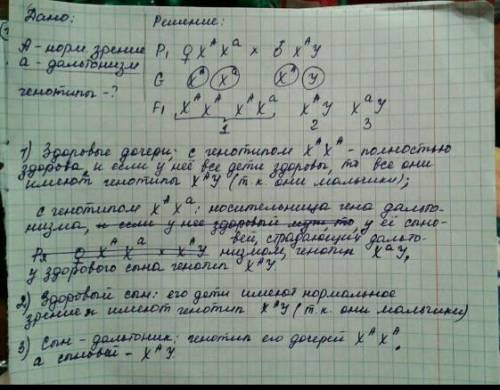 Дано:
А - норм. зрение
а - дальтонизм
генотипы - ?
Решение:
P₁ ♀ XᴬXᵃ × ♂ XᴬY
G Xᴬ Xᵃ Xᴬ Y
F₁ XᴬXᴬ XᴬXᵃ XᴬY XᵃY
1 2 3
1) Здоровые дочери: с генотипом XᴬXᴬ - полностью
здорова, и если у неё все дети здоровы, то все они
имеют генотипы XᴬY (т.к. они мальчики);
с генотипом XᴬXᵃ: носительница гена дальто-
низма, и если у нее здоровый муж, то у её сыно-
вей, страдающий дально-
P₂ ♀ XᴬXᵃ × XᴬY низмом, генотип XᵃY,
у здорового сына генотип XᴬY
2) Здоровый сын: его дети имеют нормальное
зрение и имеют генотип XᴬY (т.к. они мальчики)
3) Сын - дальтоник: генотип его дочерей XᴬXᴬ,
а сыновей - XᴬY